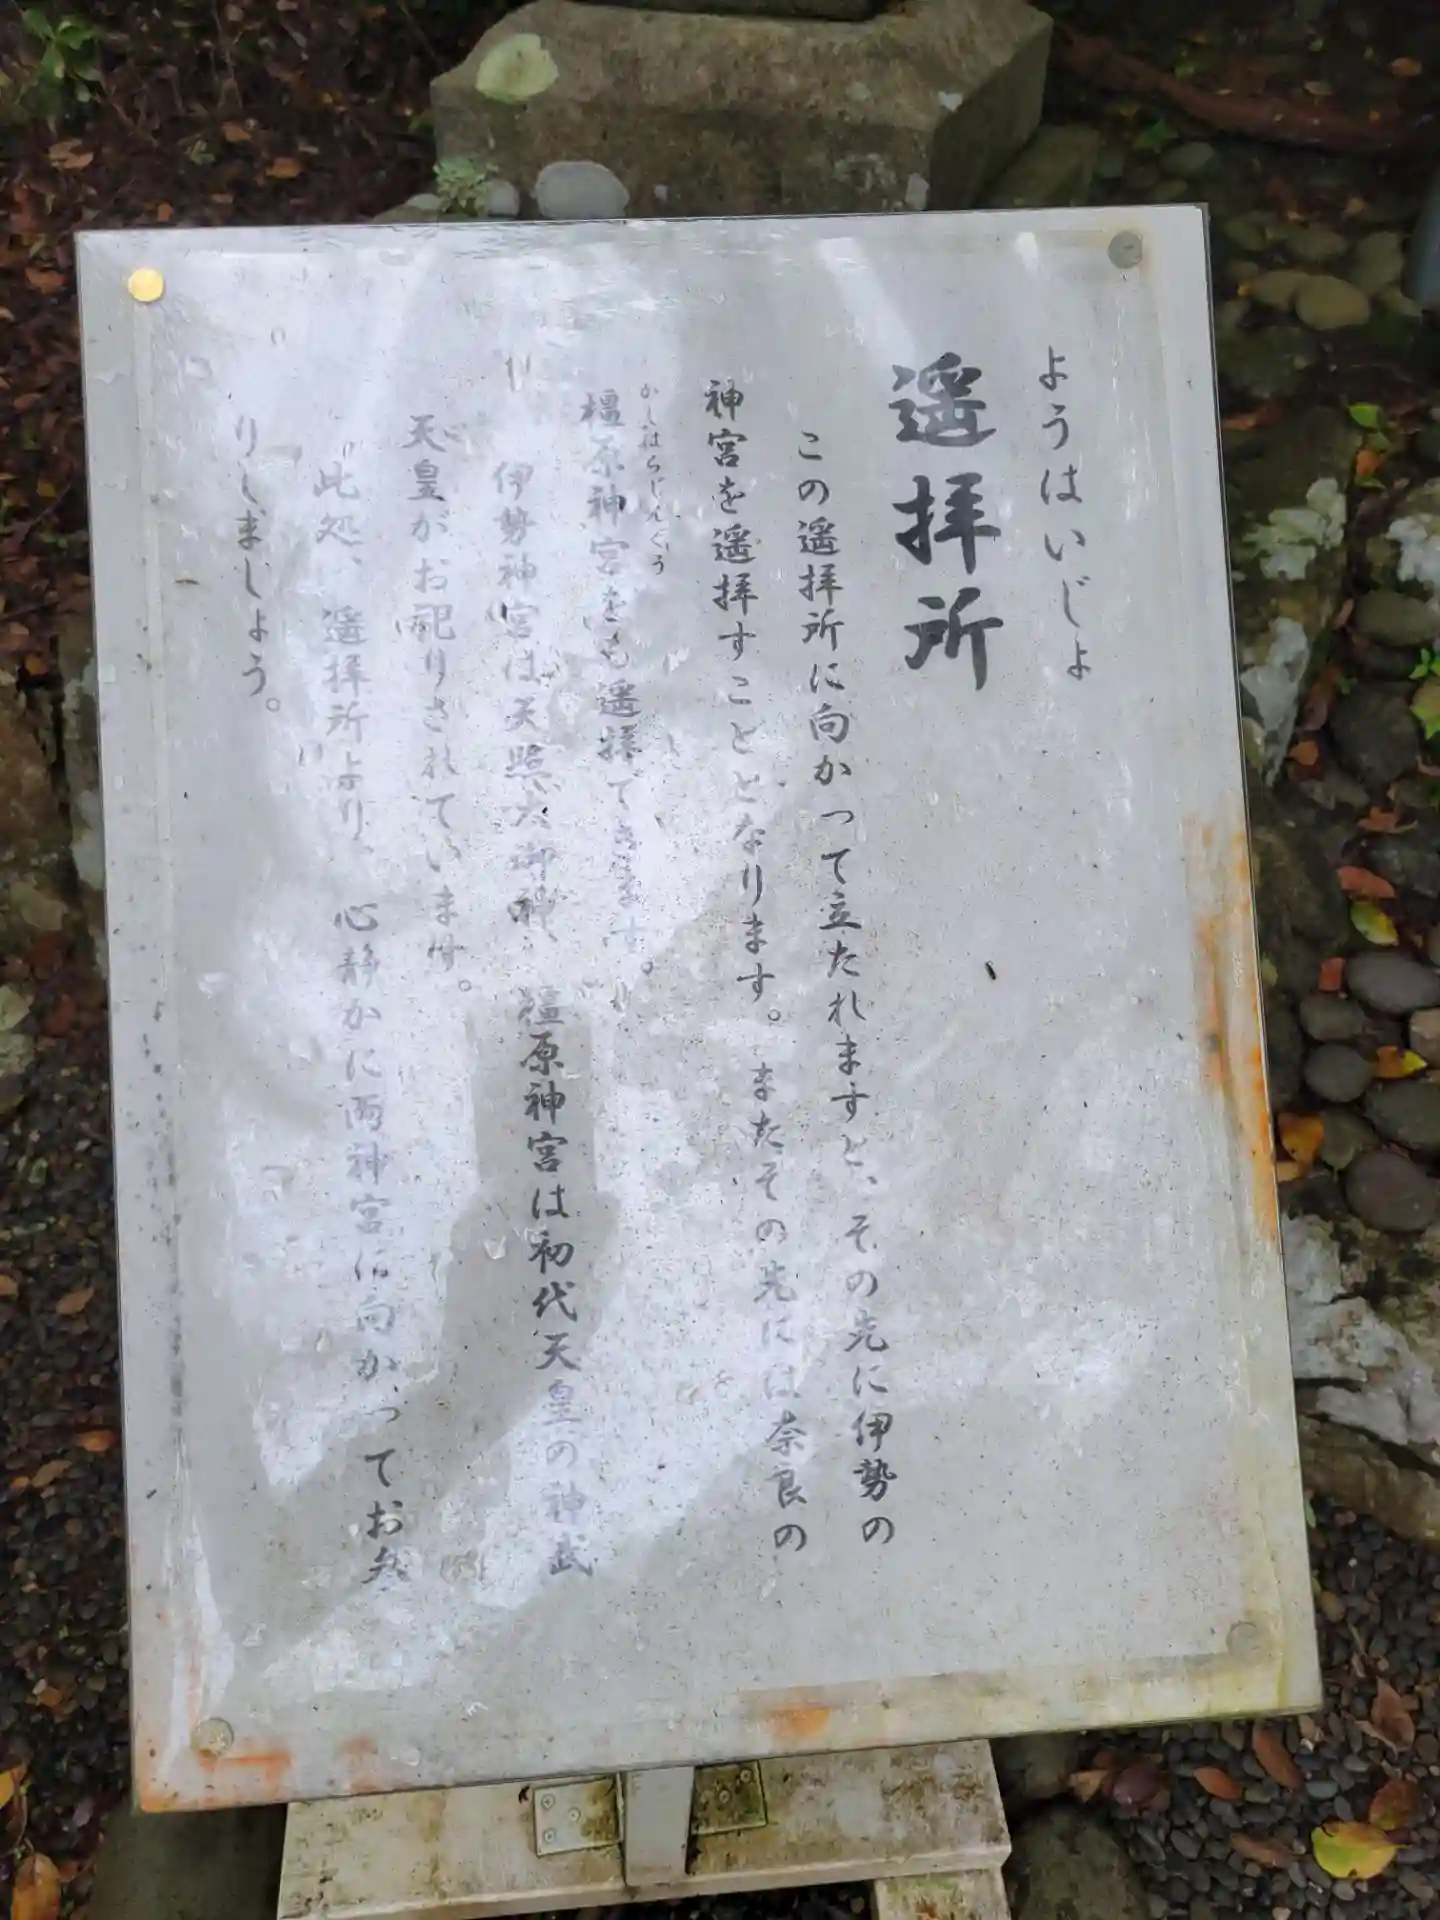 ようはいじょ
遥拝所
この遥拝所に向かって立たれますと、その先に伊勢の
神宮を遥拝すこととなります。またその先には奈良の
かしはらじんぐう
橿原神宮をも遥拝できます。
伊勢神宮は天照大御神、橿原神宮は初代天皇の神武
天皇がお祀りされています。
此処、遥拝所より、心静かに両神宮に向かってお参
りしましょう。